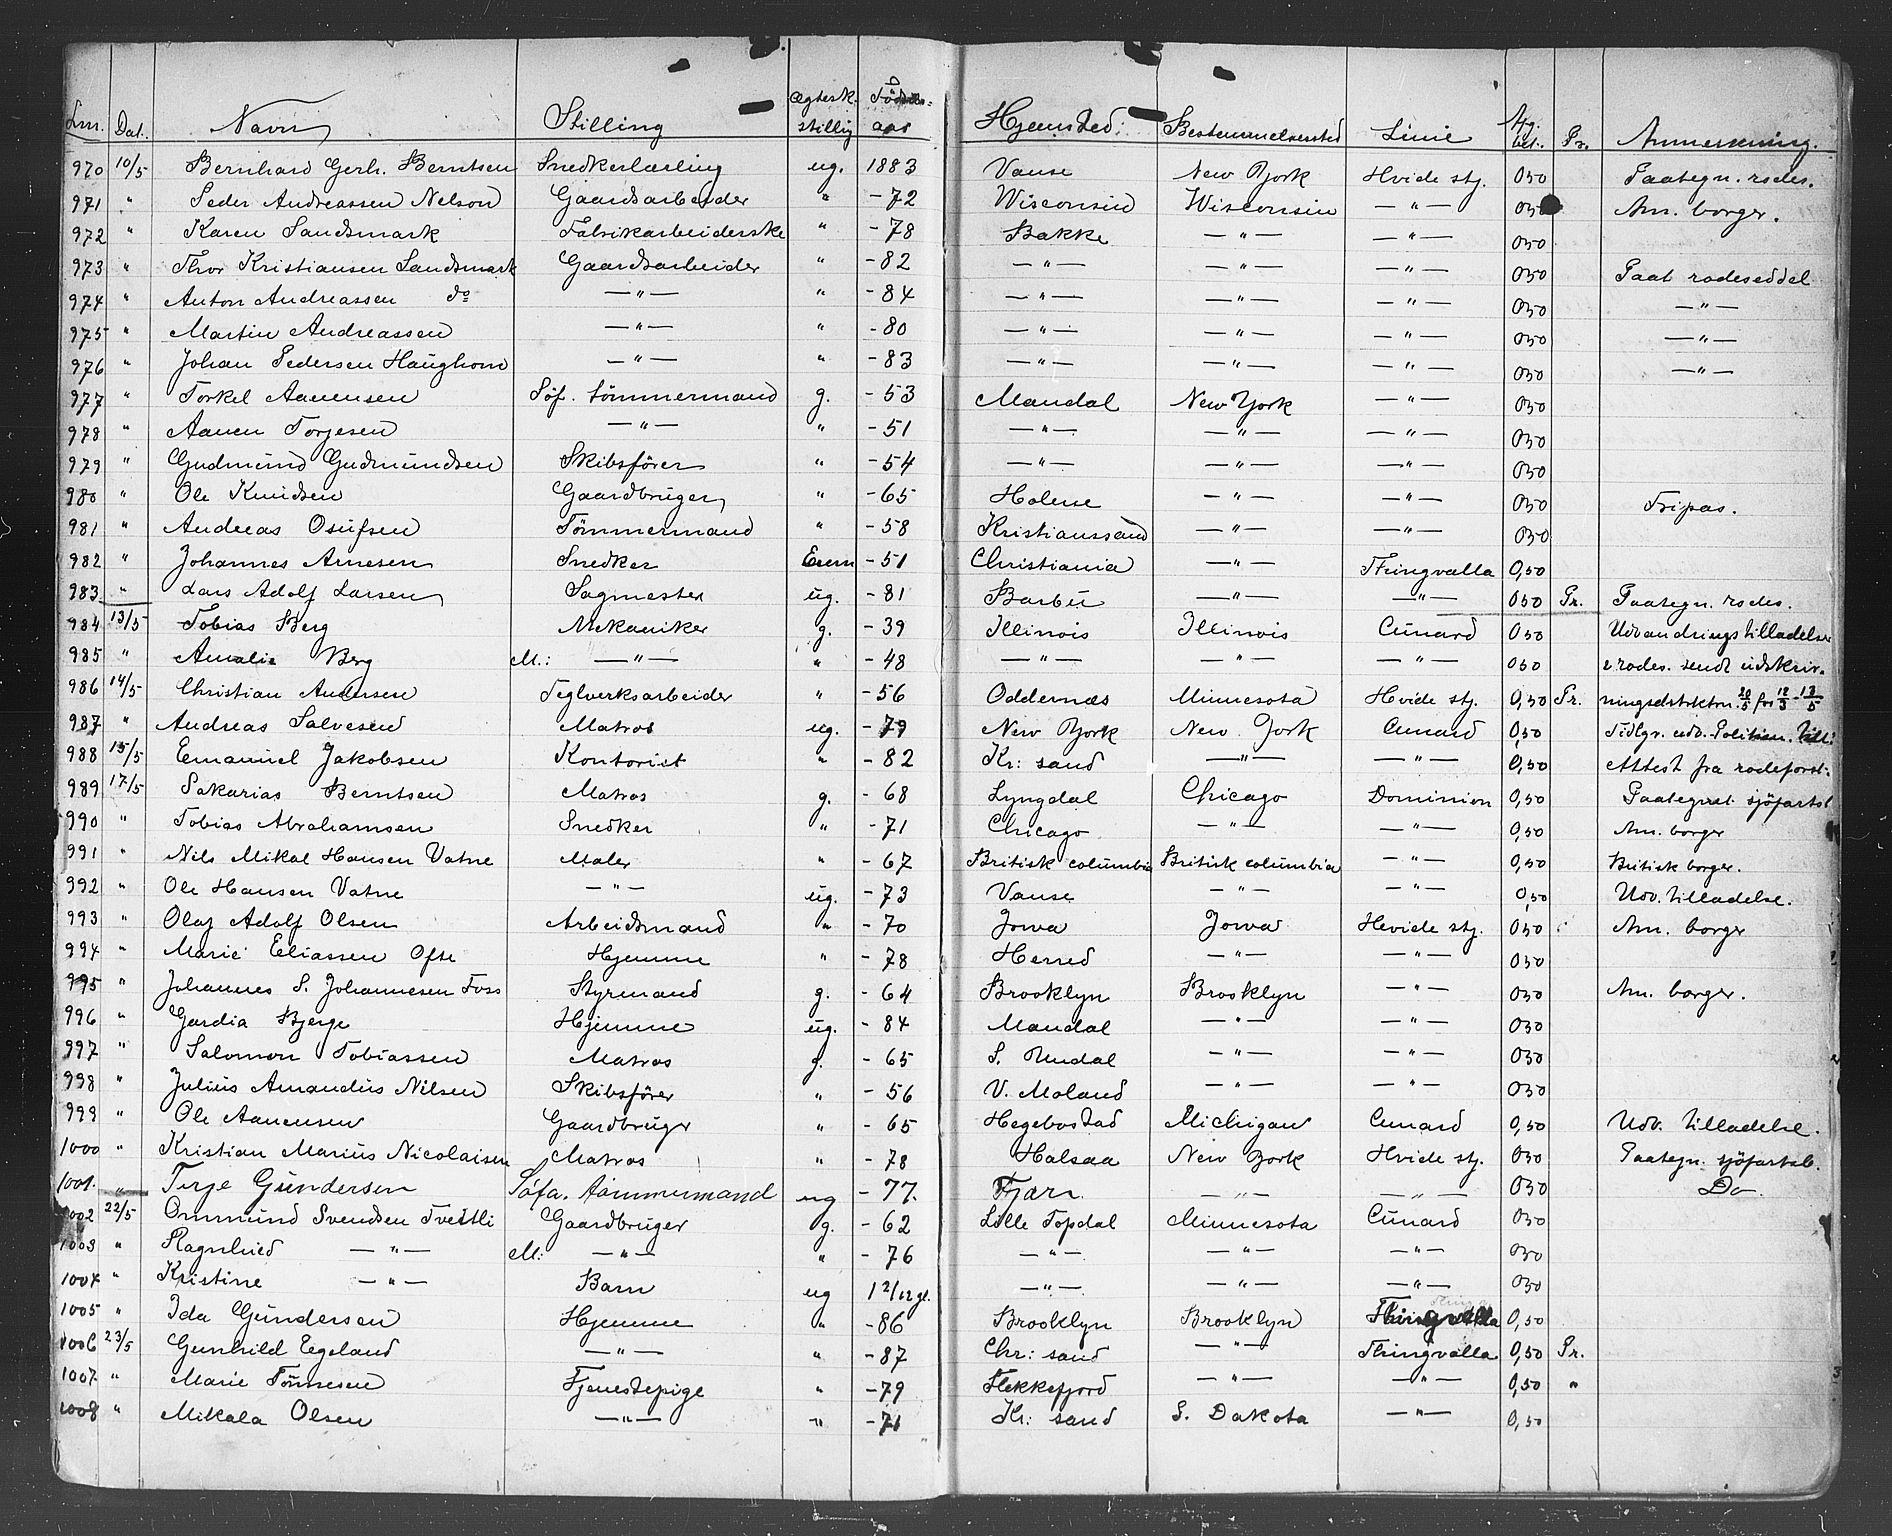 Lnr. Dat. Navn Stilling Ægtesk. stillig Fødsels- aar Hjemsted: Bestemmelsessted Linie Afg. bet. Pr. Anmerkning.
970 10/5 Bernhard Gerh. Berntsen Snedkerlærling ug. 1883 Vanse New York Hvide stj. 050 Paategn. rodes.
971 " Peder Andreassen Nelson Gaardsarbeider " -72 Wisconsin Wisconsin —"— 050 Am. borger.
972 " Karen Sandsmark Fabrikarbeiderske " -78 Bakke —"— —"— 050
973 " Thor Kristiansen Sandsmark Gaardsarbeider " -82 —"— —"— —"— 050 Paat rodeseddel
974 " Anton Andreassen do —"— " -84 —"— —"— —"— 050 —"—
975 " Martin Andreassen —"— " -80 —"— —"— —"— 050 —"—
976 " Johan Pedersen Haughom —"— " -83 —"— —"— —"— 050 —"—
977 " Torkel Aanensen Söf. tömmermand g. -53 Mandal New York —"— 050
978 " Aanen Torjesen —"— " -51 —"— —"— —"— 050
979 " Gudmund Gudmundsen Skibsförer " -54 —"— —"— —"— 050
980 " Ole Knudsen Gaardbruger " -65 Holme —"— —"— 050 Fripas.
981 " Andreas Osufsen Tömmermand " -58 Kristianssand —"— —"— 050
982 " Johannes Arnesen Snedker Enem -51 Christiania —"— Thingvalla 0,50
983 " Lars Adolf Larsen Sagmester ug. -81 Barbu —"— —"— 050 Pr. Paategn. rodes.
984 13/5 Tobias Berg Mekaniker g. -39 Illinois Illinois Cunard 050 Udvandringstilladelse
985 " Amalie Berg M.: —"— " -48 —"— —"— —"— 050 i rodes. sendt udskriv-
986 14/5 Christian Andersen Teglverksarbeider " -56 Oddernæs Minnesota Hvide stj. 0,50 Pr. ningsdstrktn. 20/5 for 12/3 - 13/5
987 " Andreas Salvesen Matros ug. -79 New York New York Cunard 0,50 Tidlgr. udv. Politiem. till:
988 15/5 Emanuel Jakobsen Kontorist " -82 Kr: sand —"— —"— 0,50 Attest fra rodeforst:
989 17/5 Sakarias Berntsen Matros g. -68 Lyngdal Chicago Dominion 0,50 Paategnet sjöfartsb
990 " Tobias Abrahamsen Snedker " -71 Chicago —"— —"— 0,50 Am. borger
991 " Nils Mikal Hansen Vatne Maler " -67 Britisk columbia Britisk columbia —"— 0,50 Britisk borger.
992 " Ole Hansen Vatne —"— ug. -73 Vanse —"— —"— 0,50 Udv. tilladelse.
993 " Olaf Adolf Olsen Arbeidsmand " -70 Jowa Jowa Hvide stj. 050 Am. borger
994 " Marie Eliassen Ofte Hjemme " -78 Herred —"— —"— 050
995 " Johannes S. Johannesen Foss Styrmand g. -64 Brooklyn Brooklyn —"— 050 Am. borger.
996 " Gardia Bjerge Hjemme ug. -84 Mandal —"— —"— 050
997 " Salomon Tobiassen Matros g. -65 S. Undal —"— —"— 050
998 " Julius Amandus Nilsen Skibsförer " -56 V. Moland —"— —"— 050
999 " Ole Aanensen Gaardbruger " -65 Hegebostad Michigan Cunard 0,50 Udv. tilladelse.
1000 " Kristian Marius Nicolaisen Matros " -78 Halsaa New York Hvide stj. 050 Paategn. sjöfartsb.
1001. " Terje Gundersen Söfa. tömmermand ug -77. Fjære —"— —"— 050 Do.
1002 22/5 Ommund Svendsen Tveitli Gaardbruger g. -62 Lille Topdal Minnesota Cunard 050
1003 " Ragnhild —"— M: —"— " -76 —"— —"— —"— 050
1004 " Kristine —"— Barn ug 1 2/12 gl. —"— —"— —"— 050
1005 " Ida Gundersen Hjemme " -86 Brooklyn Brooklyn Thingvalla 0,50
1006 23/5 Gunhild Egeland —"— " -87 Chr: sand —"— Thingvalla 0,50 Pr.
1007 " Marie Tönnesen Tjenestepige " -79 Flekkefjord —"— —"— 0,50 "
1008 " Mikala Olsen —"— " -71 Kr: sand S. Dakota —"— 0,50